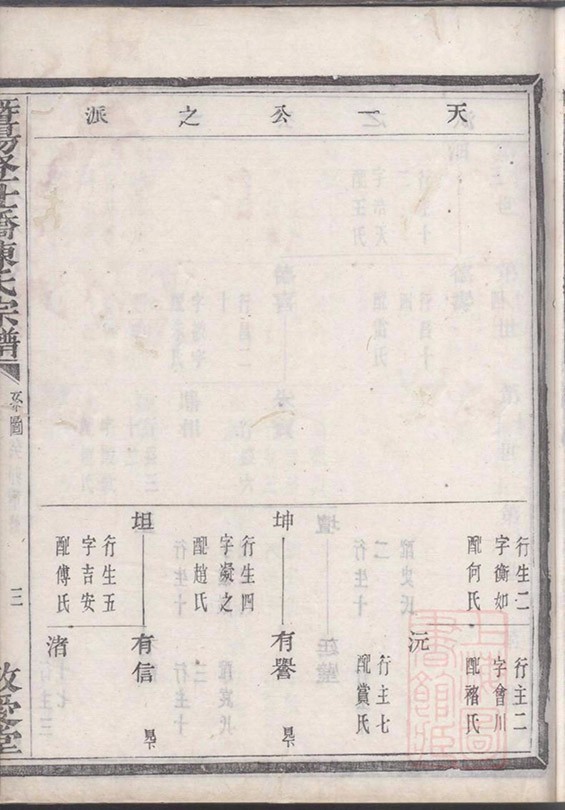 天一公之派
行生二
字衡如
配何氏
行主二
字會川
配禇氏
沅
行主七
配賞氏
坤
行生四
字凝之
配趙氏
有譽
見下
坦
行生五
字吉安
配傅氏
有信
見下
渚
橋陳氏宗譜
系圖
三
敬愛堂